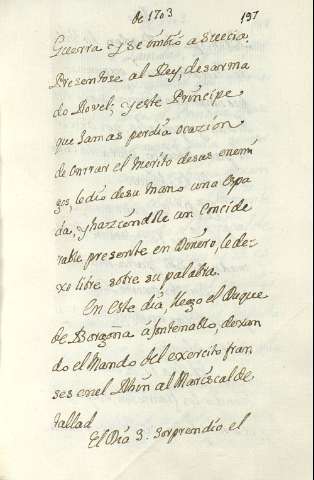 de 1703
197
Guerra y se imbio a Suecia.
Presentose al Rey, desarma
do Novel; y este Principe
que Jamas perdia ocazion
de onrrar el Merito de sus enemi
gos, le dio de su Mano una Espa
da, y haziendole un Concide
rable presente en Dinero, le de
xo libre sobre su palabra.
En este dia, llego el Duque
de Borgoña á fontenablo, dexan
do el Mando del exercito fran
ses en el Rhin al Mariscal de
tallad
El Dia 3. Sorprendio el